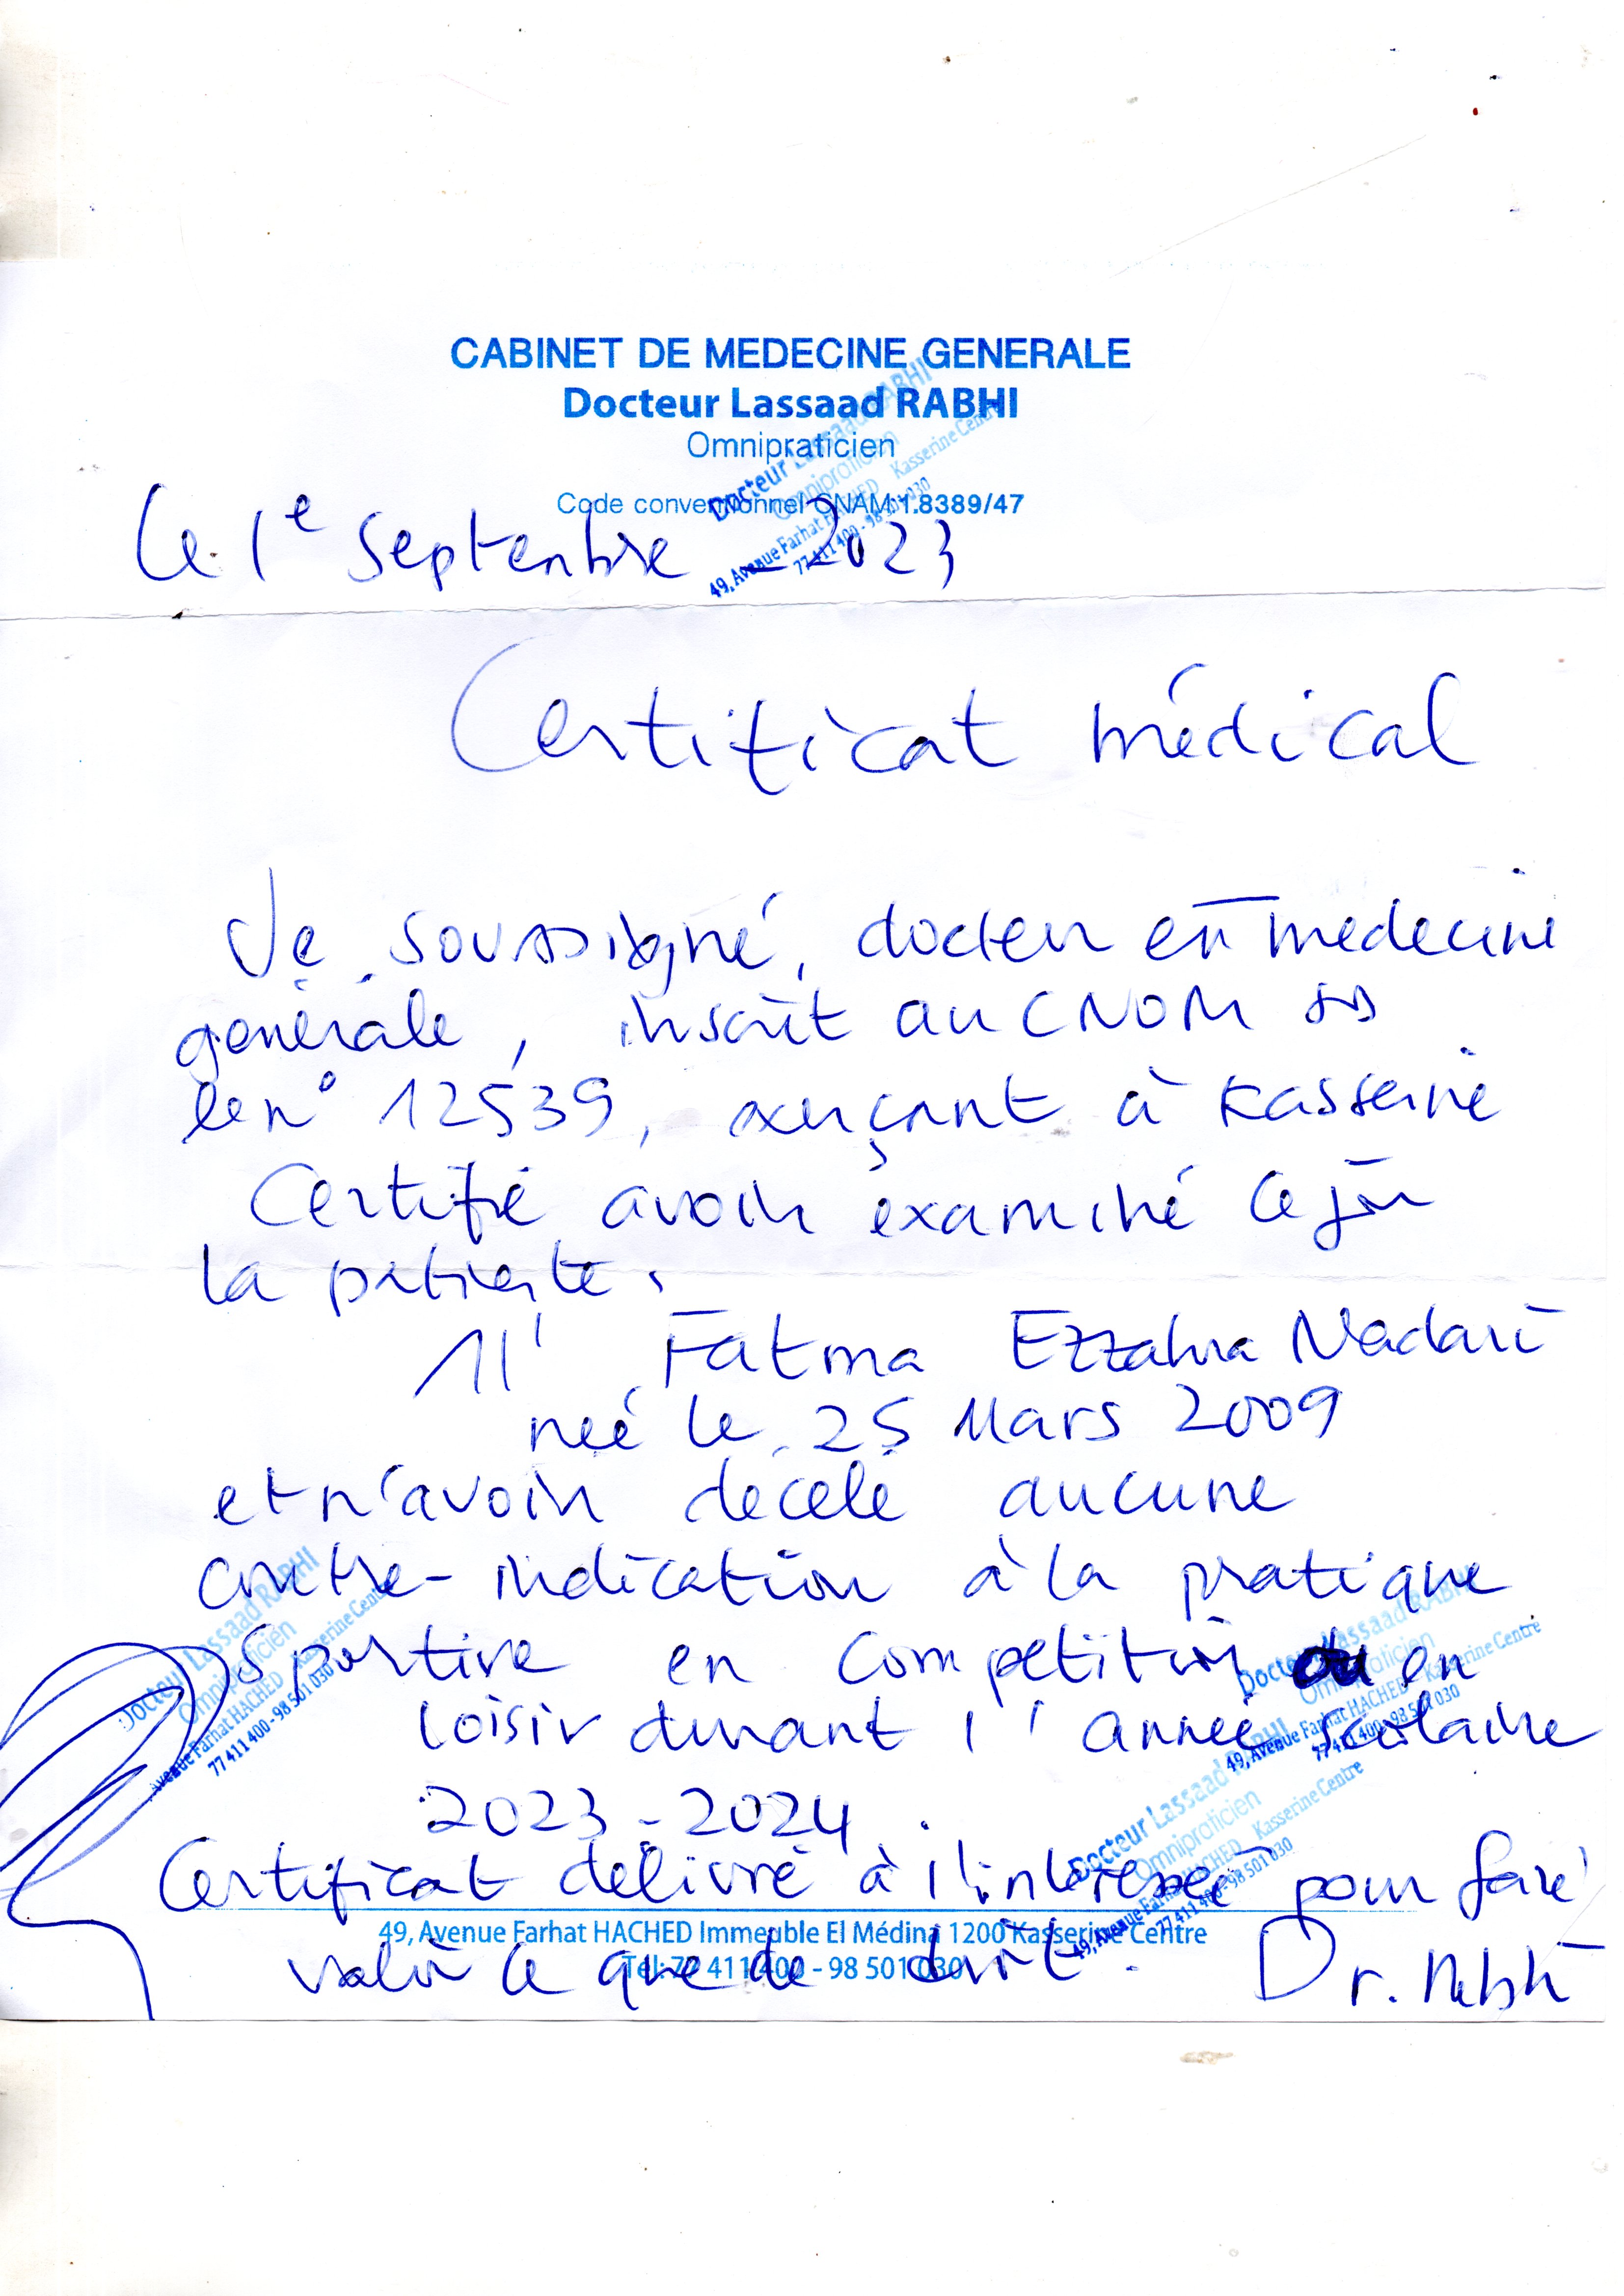 CABINET DE MEDECINE GENERALE
Docteur Lassaad RABHI
Omnipraticien
Code conventionnel CNAM:1.8389/47
Docteur Lassaad RABHI
Omnipraticien
49, Avenue Farhat HACHED Kasserine Centre
77 411 400 - 98 501 030
Le 1e Septembre 2023
Certificat médical
Je soussigné, docteur en medecine
générale, inscrit au CNOM ss
le n° 12539, exerçant à Kasserine
Certifie avoir examiné ce jour
la patiente:
Fatma Ezzahra Nadari
née le 25 Mars 2009
et n'avoir décelé aucune
contre-indication à la pratique
Sportive en compétition ou en
loisir durant l'année scolaire
2023-2024.
Docteur Lassaad RABHI
Omnipraticien
Avenue Farhat HACHED Kasserine Centre
77 411 400 - 98 501 030
Docteur Lassaad RABHI
Omnipraticien
49, Avenue Farhat HACHED Kasserine Centre
77 411 400 - 98 501 030
Docteur Lassaad RABHI
Omnipraticien
49, Avenue Farhat HACHED Kasserine Centre
77 411 400 - 98 501 030
Certificat délivré à l'interessé pour faire
valoir ce que de droit.
Dr. Rabhi
49, Avenue Farhat HACHED Immeuble El Médina 1200 Kasserine Centre
Tél: 77 411 400 - 98 501 030